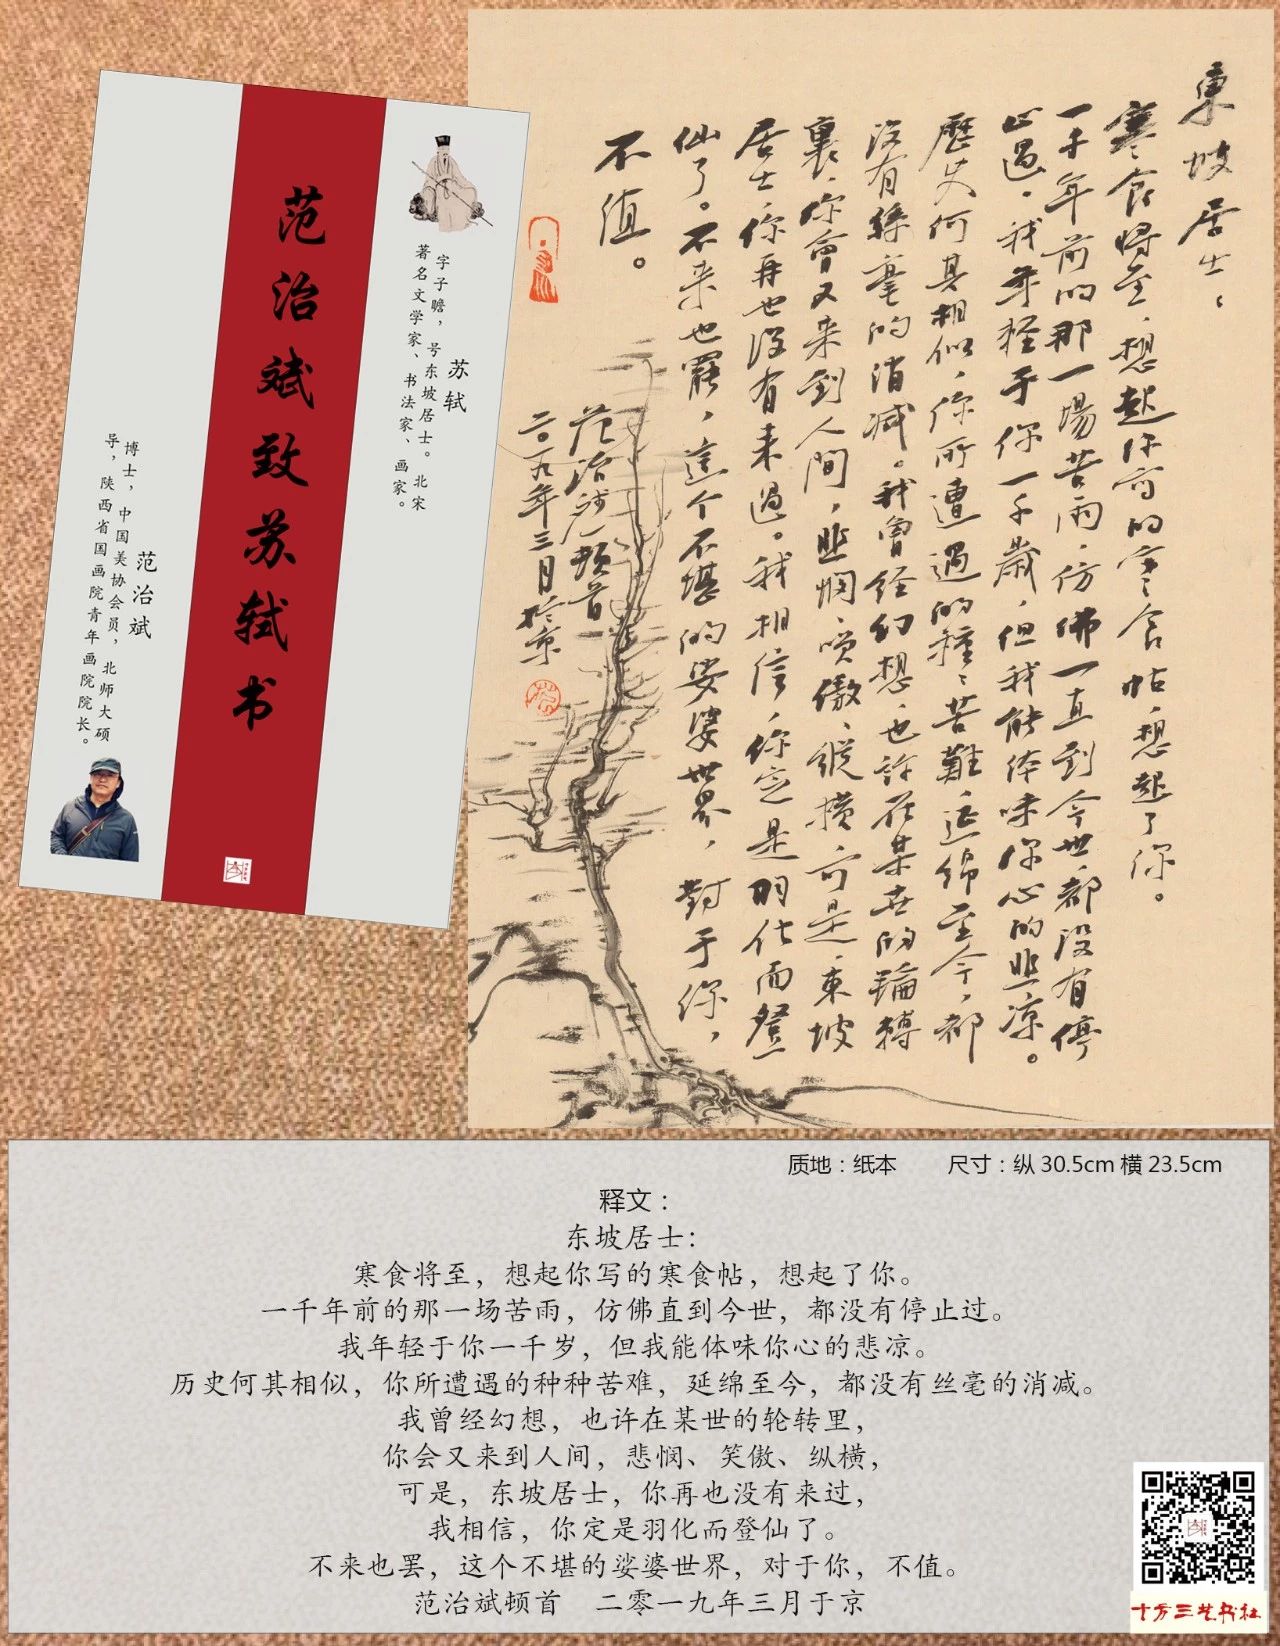 苏轼
字子瞻，号东坡居士。北宋
著名文学家、书法家、画家。
范治斌致苏轼书
范治斌
博士，中国美协会员，北师大硕
导，陕西省国画院青年画院院长。
東坡居士：
寒食将至，想起你写的寒食帖，想起了你。
一千年前的那一場苦雨，仿佛一直到今世，都没有停
止過。我年轻于你一千歲，但我能体味你心的悲凉。
歷史何其相似，你所遭遇的種種苦難，延綿至今，都
没有絲毫的消减。我曾经幻想，也許在某世的輪轉
裏，你會又来到人间，悲悯、笑傲、縱横，可是，東坡
居士，你再也没有来過。我相信，你定是羽化而登
仙了。不来也罷，這个不堪的娑婆世界，對于你，
不值。
范治斌頓首
二〇一九年三月於京
质地：纸本　尺寸：纵 30.5cm 横 23.5cm
释文：
东坡居士：
寒食将至，想起你写的寒食帖，想起了你。
一千年前的那一场苦雨，仿佛直到今世，都没有停止过。
我年轻于你一千岁，但我能体味你心的悲凉。
历史何其相似，你所遭遇的种种苦难，延绵至今，都没有丝毫的消减。
我曾经幻想，也许在某世的轮转里，
你会又来到人间，悲悯、笑傲、纵横，
可是，东坡居士，你再也没有来过，
我相信，你定是羽化而登仙了。
不来也罢，这个不堪的娑婆世界，对于你，不值。
范治斌顿首　二零一九年三月于京
十方三艺书社